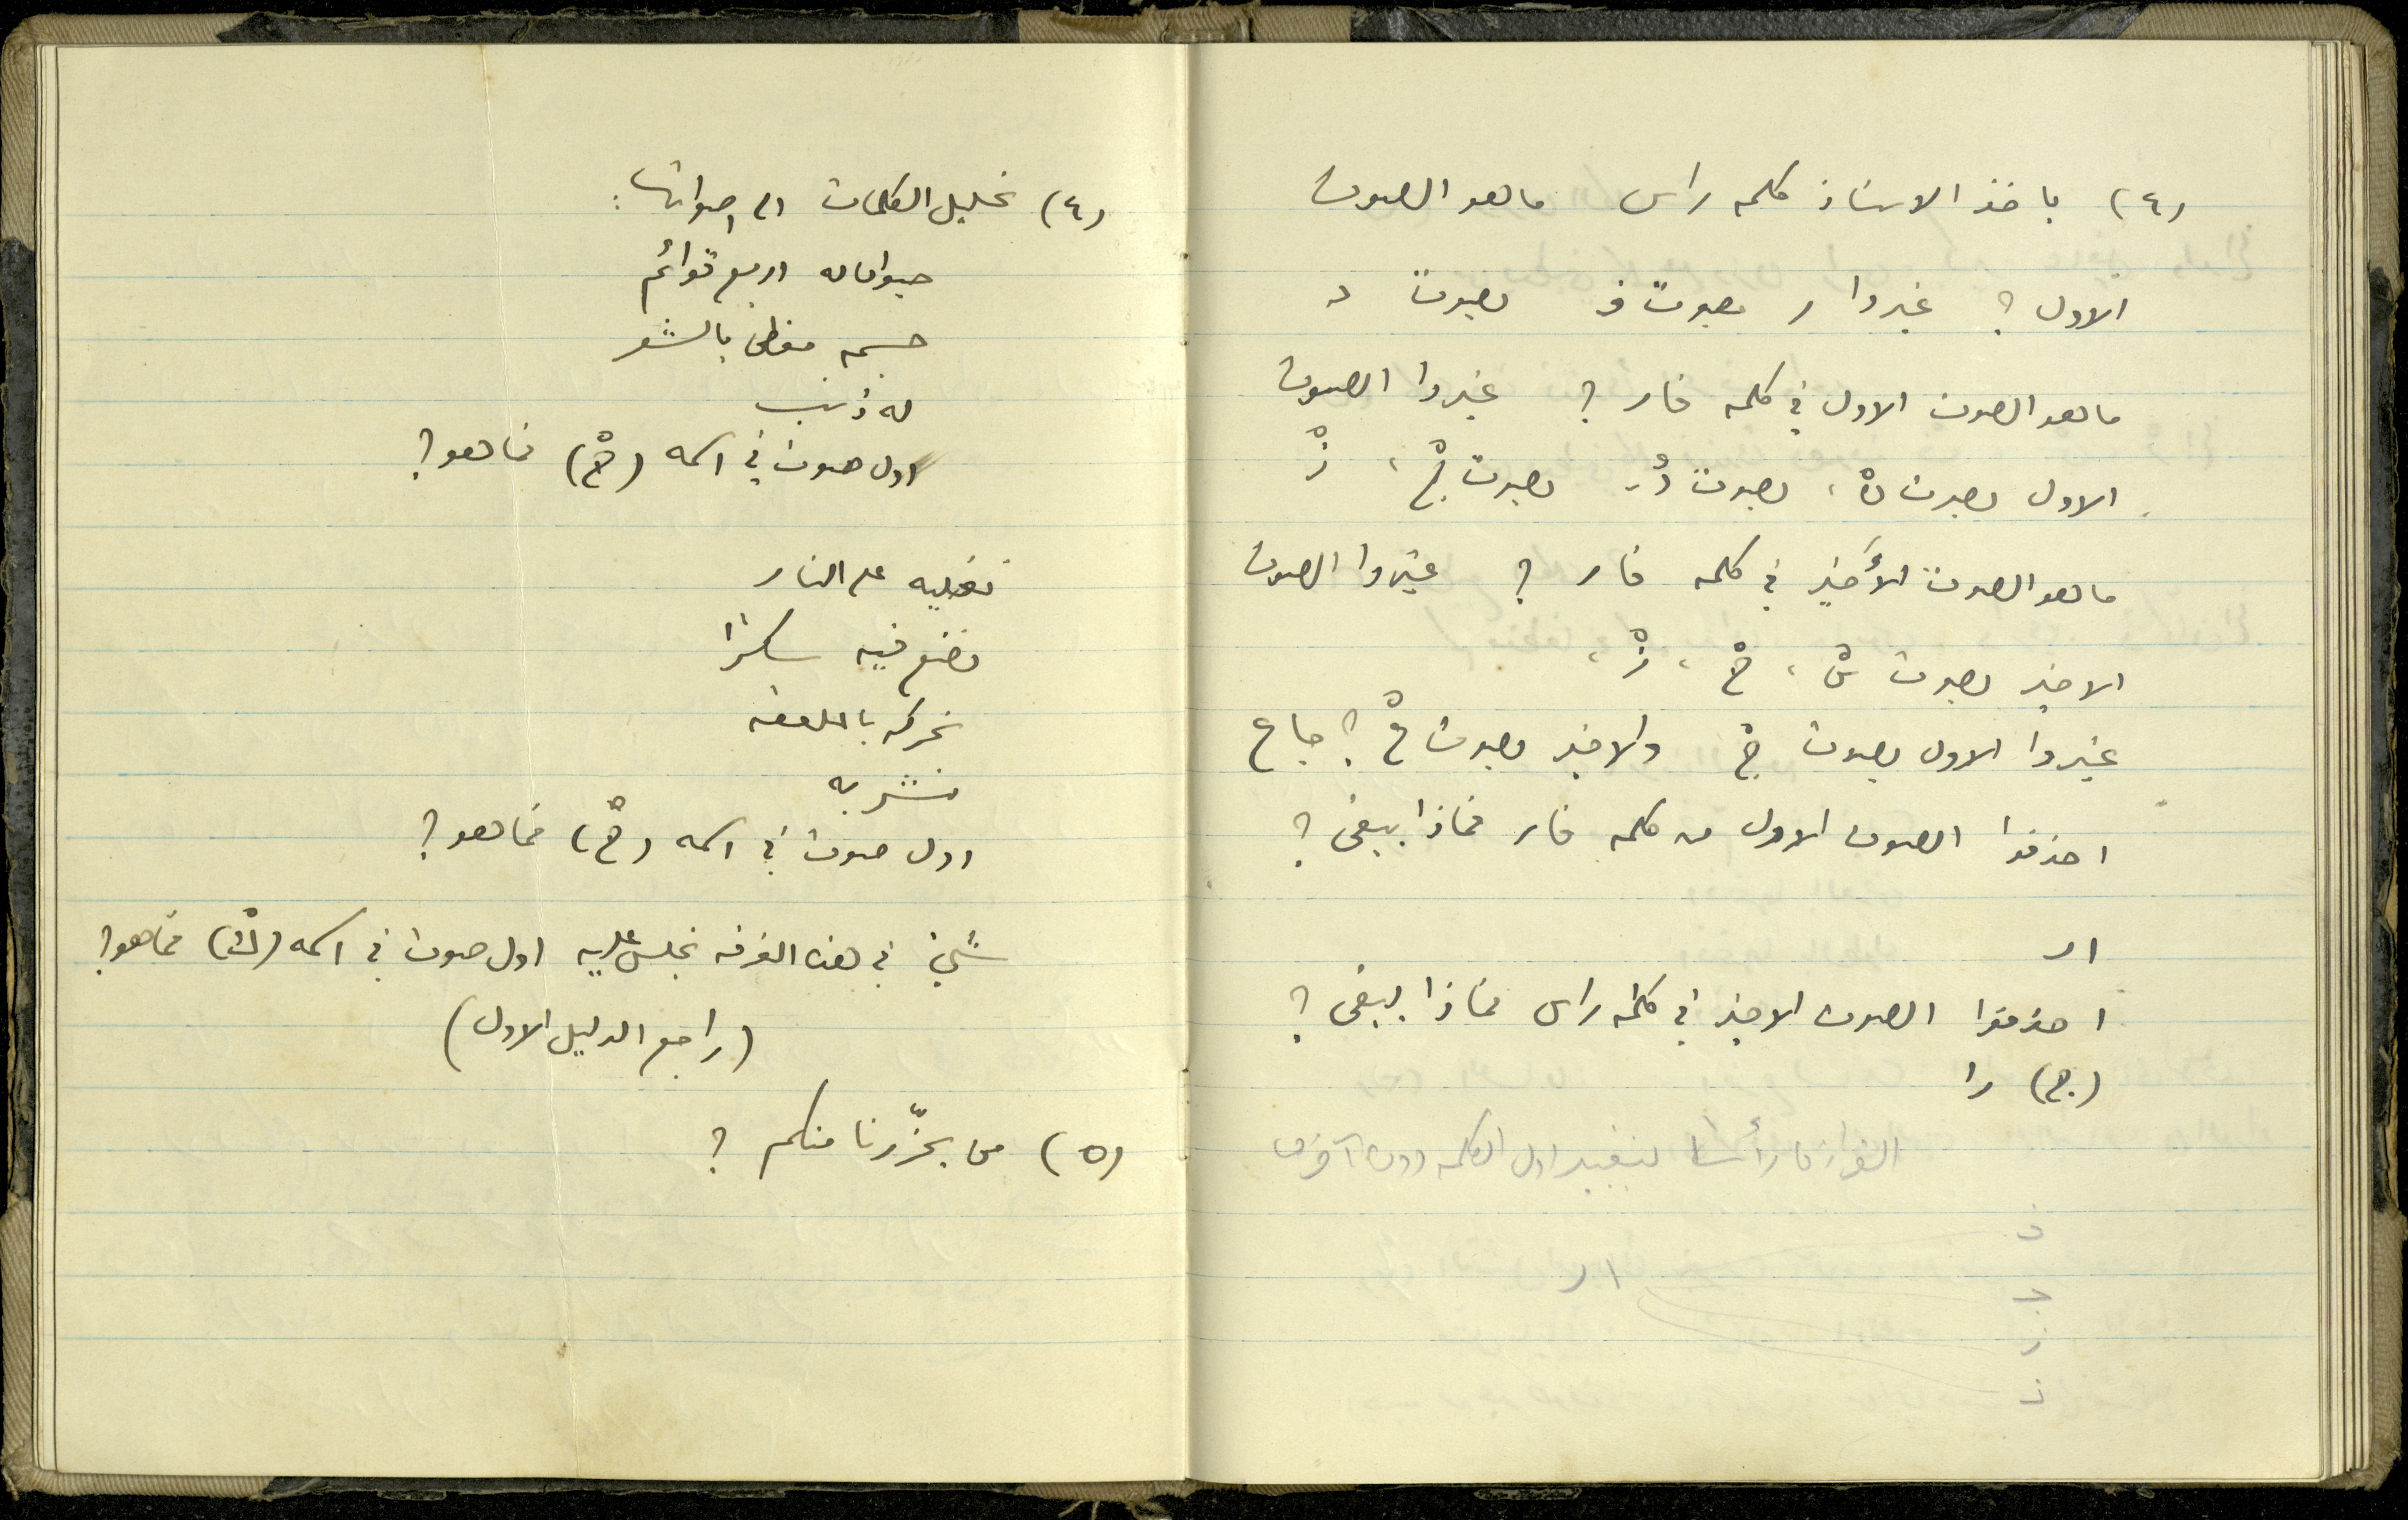 (٤) ياخذ الاستاذ كلمه راس ماهو الصوت
الاول ؟ غيروا ر بصوت ف بصوت د
ماهو الصوت الاول في كلمه فار ؟ غيروا الصوت
الاول بصوت نْ ، بصوت دْ ، بصوت جْ ، زْ
ماهو الصوت الأخير في كلمه فار ؟ غيّروا الصوت
الاخير بصوت سْ ، حْ ، زْ ،
غيروا الاول بصوت جْ والاخير بصوت عْ ؟ جاع
احذفوا الصوت الاول من كلمه فار فماذا يبقى ؟
ار
احذفوا الصوت الاخير في كلمه راس فماذا يبقى ؟
(ج) را
لتغيير اول الكلمه دون آخرها
ف
ج
ار
ز
ن
(٤) تحليل الكلمات الى اصواتها :
حيوان له اربع قوائم
جسمه مغطى بالشعر
له ذنب
اول صوت في اسمه (حْ) فماهو ؟
نغليه على النار
نضع فيه سكرًا
نحركه بالملعقه
نشربه
اول صوت في اسمه (حْ) فماهو ؟
شيئ في هذه الغرفه نجلس عليه اول صوت في اسمه (كْ) فماهو ؟
(راجع الدليل الاول)
(٥) من يحزّرنا منكم ؟